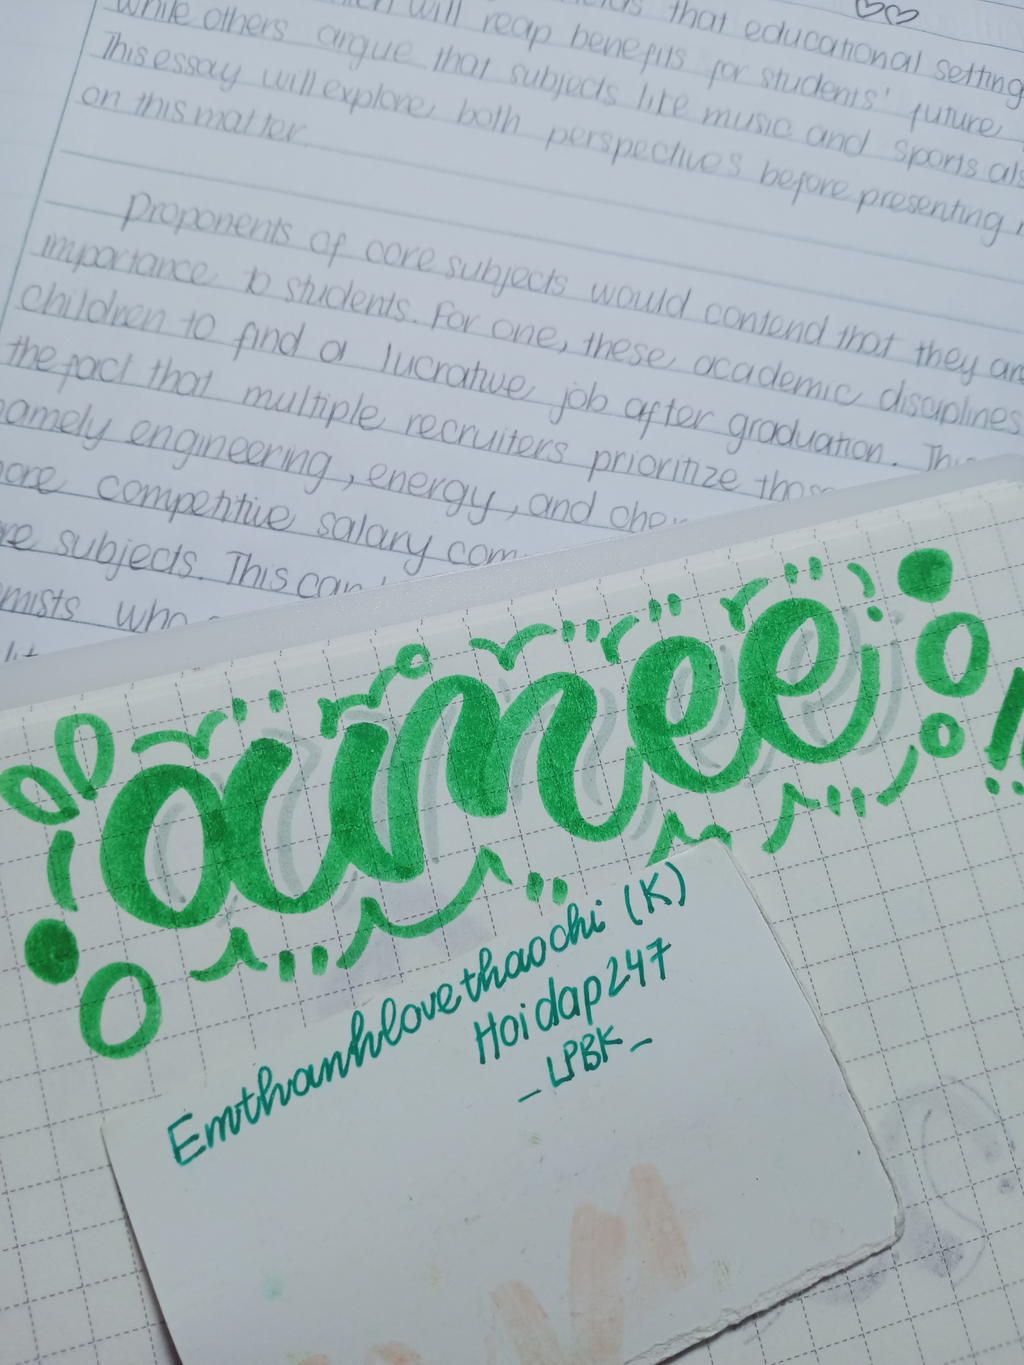 will reap benefits for students' future
that educational setting
while others argue that subjects like music and sports als
This essay will explore both perspectives before presenting
on this matter.
Proponents of core subjects would contend that they are
importance to students. For one, these academic disciplines
children to find a lucrative job after graduation. This
the fact that multiple recruiters prioritize those
namely engineering, energy, and chem
more competitive salary com
re subjects. This can
mists who
aimee !!
Emthanhlovethaochi (K)
Hoidap247
_LPBK_